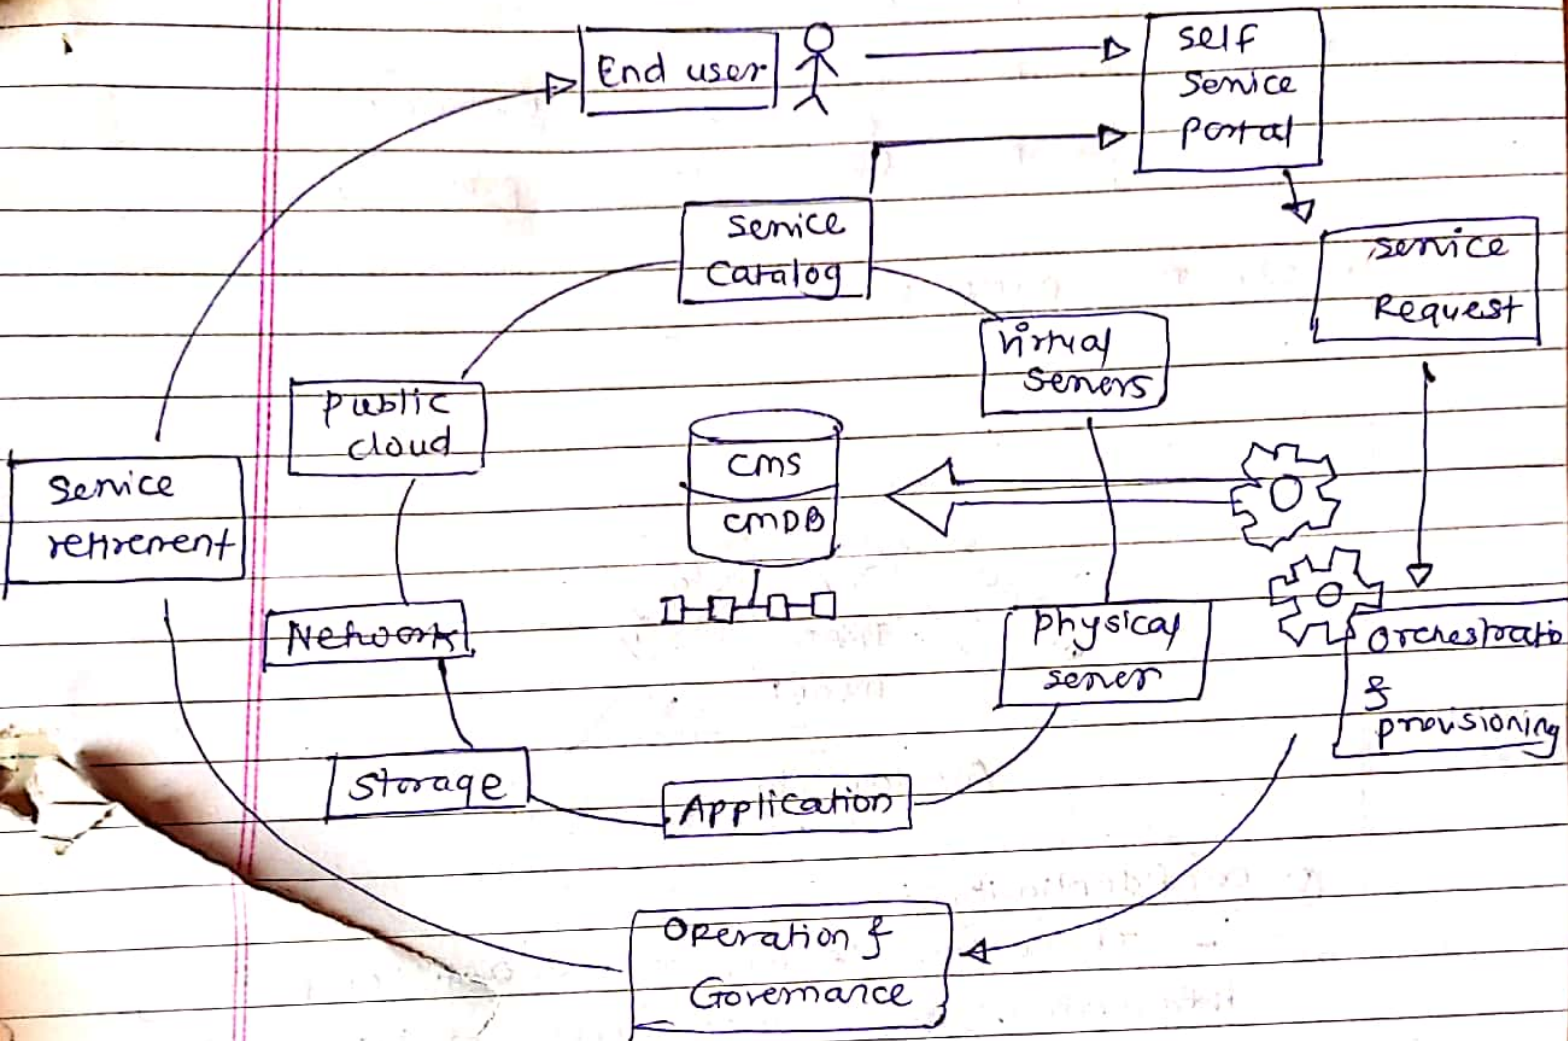 End user
Self
Service
portal
Service
Catalog
Service
Request
Virtual
Servers
public
cloud
CMS
CMDB
Service
retirement
Network
physical
server
Orchestratio
&
provisioning
Storage
Application
Operation &
Governance